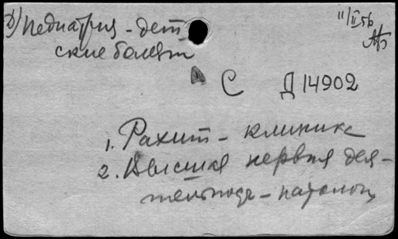 Педиатрия - дет-
ские болезни
11/II 56
С Д 14902
1. Рахит - клиника
2. Высшая нервная дея-
тельность - патолог